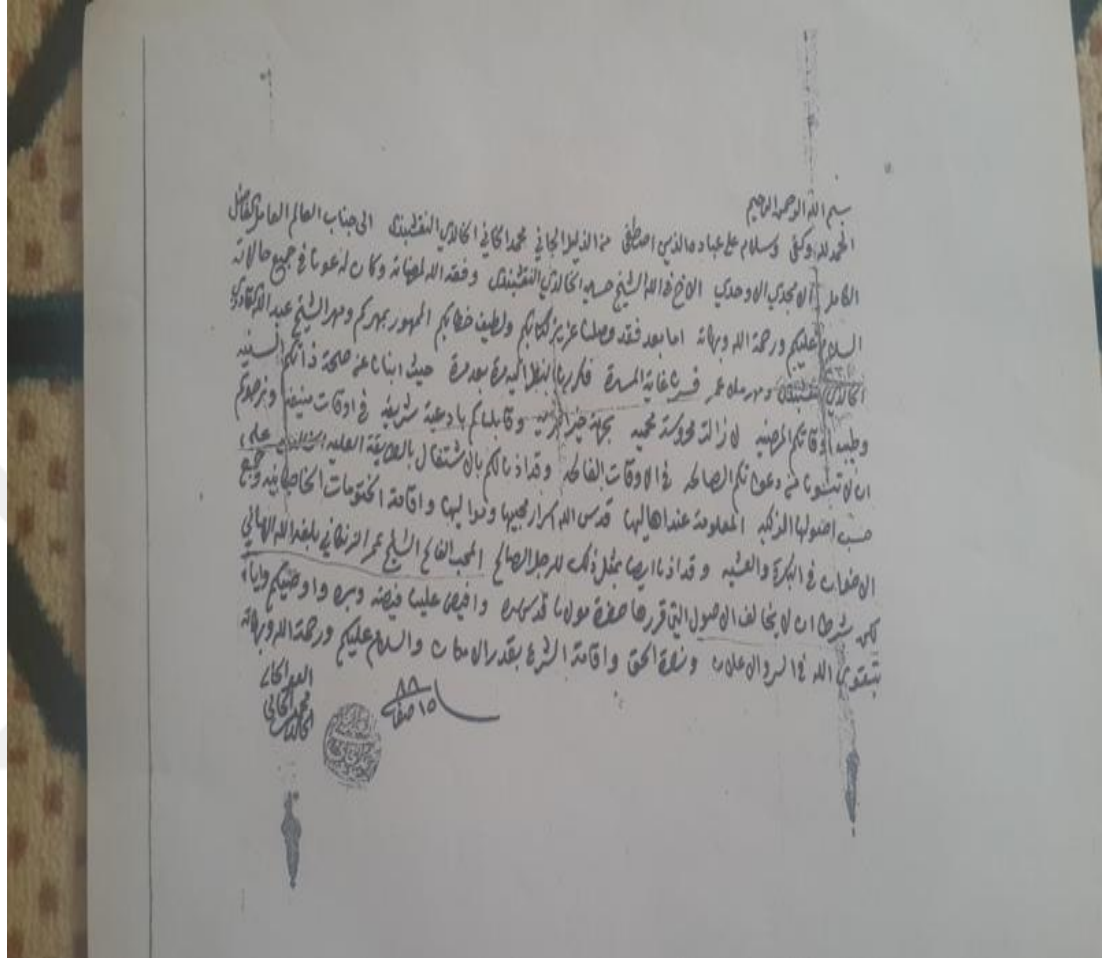 بسم الله الرحمن الرحيم
الحمد لله وكفى وسلام على عباده الذين اصطفى من الذليل الجاني محمد الخاني الخالدي النقشبندي الى جناب العالم العامل الفاضل
الكامل الامجدي الاوحدي الاخ في الله الشيخ حسين الخالدي النقشبندي وفقه الله لمرضاته وكان له عونا في جميع حالاته
السلام عليكم ورحمة الله وبركاته اما بعد فقد وصلنا عزيز كتابكم ولطيف خطابكم الممهور بمهركم ومهر الشيخ عبد الله
الخالدي النقشبندي ومهر ملا عمر فسرنا غاية المسرة فكررنا النظر اليه مرة بعد مرة حيث انبانا عن صحة ذاتكم السنيه
وطيب اوقاتكم المرضيه لا زالت محروسة محميه بجاه خير البريه وقابلناكم بادعية شريفه في اوقات منيفه ونرجوكم
ان لا تنسونا من دعواتكم الصالحه في الاوقات الفالحه وقد اذنا لكم بالاشتغال بالطريقة العليه على
حسب اصولها الزكيه المعلومة عند اهاليها قدس الله اسرار محبيها ومواليها واقامة الختومات الخاصه وجميع
الاخوان في البكرة والعشيه وقد اذنا ايضا بمثل ذلك للرجل الصالح المحب الفالح الشيخ عمر بلغه الله الاماني
لكن شرط ان لا يخالف الاصول التي قررها حضرة مولانا قدس سره وافيض علينا فيضه وبره واوصيكم واياه
بتقوى الله في السر والاعلان ونصرة الحق واقامة الشرع بقدر الامكان والسلام عليكم ورحمة الله وبركاته
١٥ صفر ٨٨
محمد الخاني
الخالدي